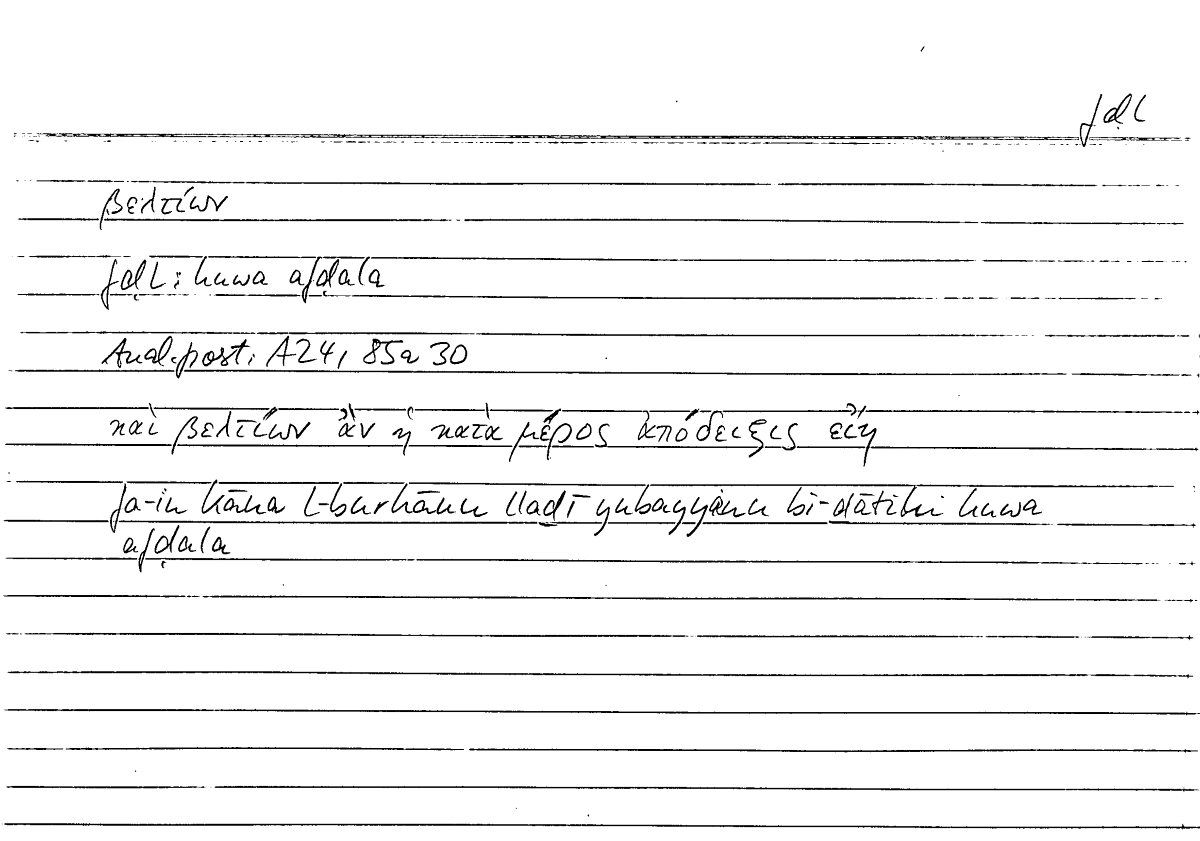 fḍl
βελτίων
fḍl: huwa afḍala
Anal.post. A24, 85a 30
καὶ βελτίων ἂν ἡ κατὰ μέρος ἀπόδειξις εἴη
fa-in kāna l-burhānu lladī yubayyinu bi-ḏātihi huwa
afḍala